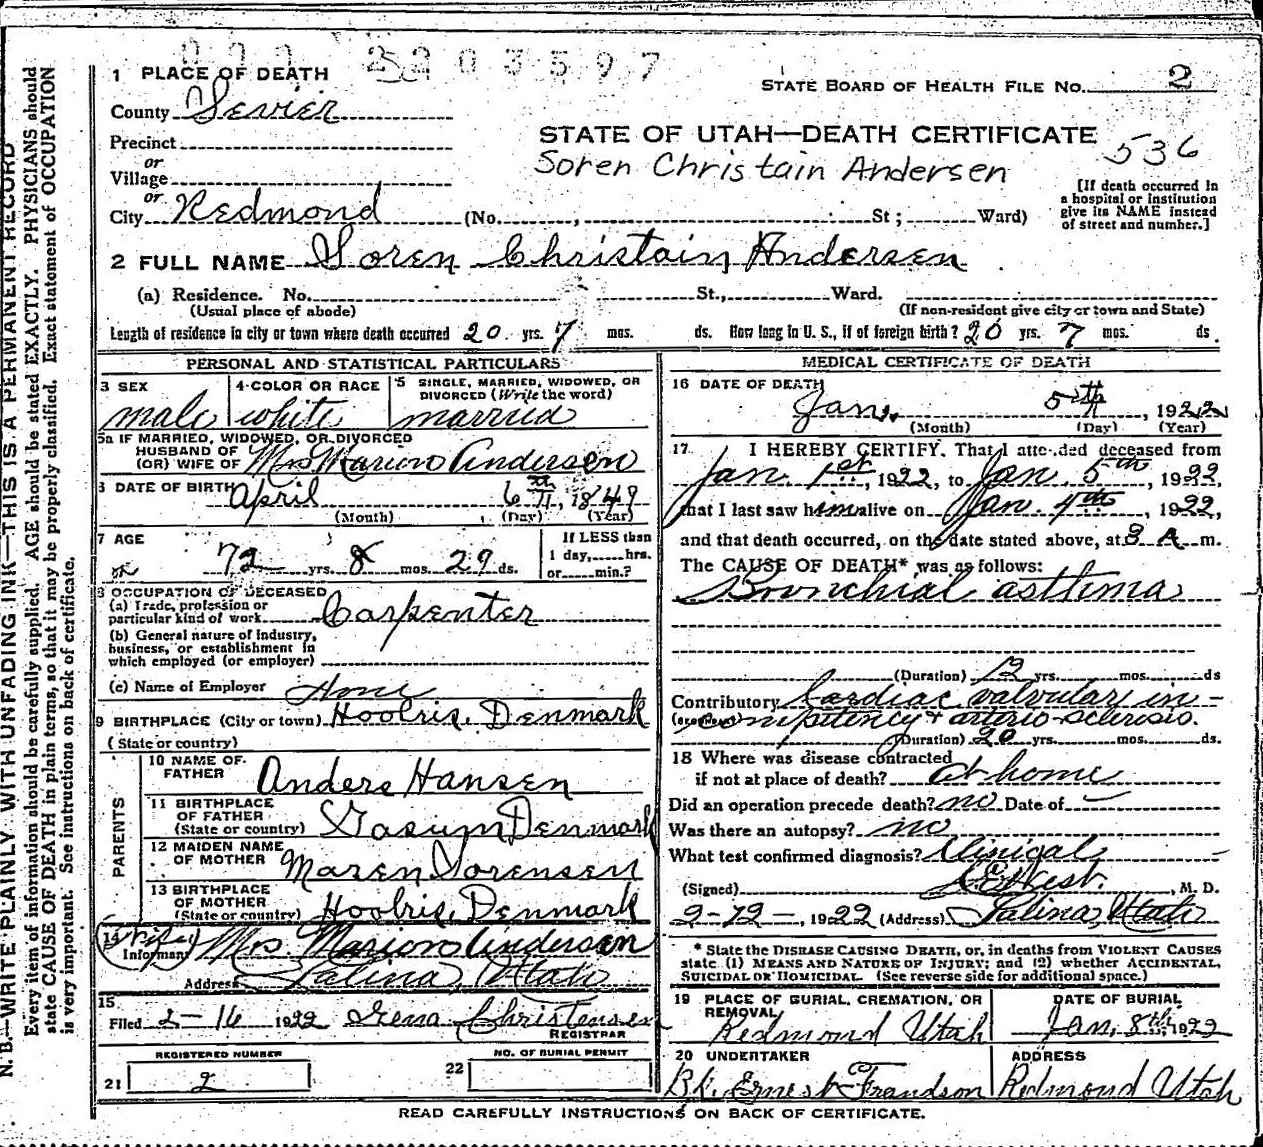 2203597
1 PLACE OF DEATH
STATE BOARD OF HEALTH FILE NO. 2
County Sevier
STATE OF UTAH—DEATH CERTIFICATE 536
Precinct
or
Soren Christain Andersen
Village
or
City Redmond (No. , St ; Ward)
[If death occurred in
a hospital or institution
give its NAME instead
of street and number.]
2 FULL NAME Soren Christain Andersen
(a) Residence. No. St., Ward.
(Usual place of abode) (If non-resident give city or town and State)
Length of residence in city or town where death occurred 20 yrs. 7 mos. ds. How long in U. S., if of foreign birth? 20 yrs. 7 mos. ds.
PERSONAL AND STATISTICAL PARTICULARS
3 SEX 4 COLOR OR RACE 5 SINGLE, MARRIED, WIDOWED, OR
DIVORCED (Write the word)
male white married
5a IF MARRIED, WIDOWED, OR DIVORCED
HUSBAND OF
(OR) WIFE OF Mrs Marion Andersen
6 DATE OF BIRTH April 6th, 1849
(Month) (Day) (Year)
7 AGE 72 yrs. 8 mos. 29 ds.
If LESS than
1 day, hrs.
or min.?
8 OCCUPATION OF DECEASED
(a) Trade, profession or
particular kind of work Carpenter
(b) General nature of industry,
business, or establishment in
which employed (or employer)
(c) Name of Employer
9 BIRTHPLACE (City or town) Hoolris, Denmark
(State or country)
PARENTS
10 NAME OF
FATHER Anders Hansen
11 BIRTHPLACE
OF FATHER
(State or country) Denmark
12 MAIDEN NAME
OF MOTHER Maren Sorensen
13 BIRTHPLACE
OF MOTHER
(State or country) Hoolris, Denmark
14 (Wife)
Informant Mrs. Marion Andersen
Address Salina, Utah
15
Filed 2-16 1922 Irena Christensen
REGISTRAR
REGISTERED NUMBER NO. OF BURIAL PERMIT
21 2 22
MEDICAL CERTIFICATE OF DEATH
16 DATE OF DEATH
Jan. 5th, 1922
(Month) (Day) (Year)
17 I HEREBY CERTIFY, That I attended deceased from
Jan. 1st, 1922, to Jan. 5th, 1922,
that I last saw him alive on Jan. 4th, 1922,
and that death occurred, on the date stated above, at 3 A m.
The CAUSE OF DEATH*, was as follows:
Bronchial asthma
(Duration) 12 yrs. mos. ds
Contributory Cardiac valvular in-
(Secondary) compitency + arterio-sclerosis.
(Duration) 20 yrs. mos. ds.
18 Where was disease contracted
if not at place of death? At home
Did an operation precede death? no Date of —
Was there an autopsy? no
What test confirmed diagnosis? Clinical
(Signed) West, M. D.
2-12-, 1922 (Address) Salina, Utah
* State the DISEASE CAUSING DEATH, or, in deaths from VIOLENT CAUSES
state (1) MEANS AND NATURE OF INJURY; and (2) whether ACCIDENTAL,
SUICIDAL OR HOMICIDAL. (See reverse side for additional space.)
19 PLACE OF BURIAL, CREMATION, OR
REMOVAL
DATE OF BURIAL
Redmond Utah Jan, 8th, 1922
20 UNDERTAKER ADDRESS
Ernest Frandson Redmond Utah
READ CAREFULLY INSTRUCTIONS ON BACK OF CERTIFICATE.
N. B.—WRITE PLAINLY WITH UNFADING INK—THIS IS A PERMANENT RECORD
Every item of information should be carefully supplied. AGE should be stated EXACTLY. PHYSICIANS should
state CAUSE OF DEATH in plain terms, so that it may be properly classified. Exact statement of OCCUPATION
is very important. See instructions on back of certificate.